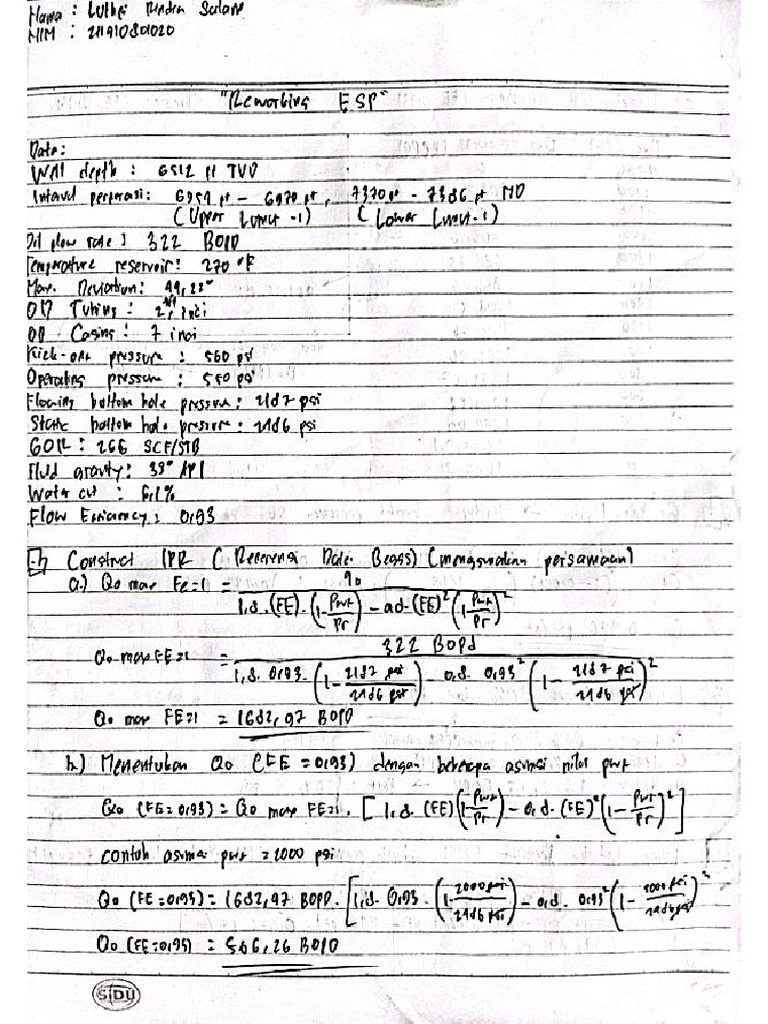 Nama : Luthfi Indra Salam
NIM :
"Reworking ESP"
Data:
Well depth : 6512 ft TVD
Interval perforasi: 6959 ft - 6970 ft, 7370 ft - 7386 ft MD
(Upper Lumut-1) (Lower Lumut-1)
Oil flow rate : 322 BOPD
Temperature reservoir: 270 °F
Max. Deviation: 44,22°
OD Tubing : inci
OD Casing : 7 inci
Kick-off pressure : 560 psi
Operating pressure : 540 psi
Flowing bottom hole pressure: 2187 psi
Static bottom hole pressure: 2486 psi
GOR : 266 SCF/STB
Fluid gravity: 38° API
Water cut : 6,1%
Flow Efficiency: 0,93
Construct IPR (Referensi Dale Beggs) (menggunakan persamaan)
a.) Qo max Fe=1 = qo / 1,8.(FE).(1-Pwf/Pr) - 0,8.(FE)²(1-Pwf/Pr)²
Qo max FE=1 = 322 BOPD / 1,8. 0,93. (1 - 2187 psi/2486 psi) - 0,8. 0,93² (1 - 2187 psi/2486 psi)²
Qo max FE=1 = 1682,97 BOPD
b.) Menentukan Qo (FE = 0,93) dengan beberapa asumsi nilai pwf
Qo (FE=0,93) = Qo max FE=1. [1,8. (FE)(1-Pwf/Pr) - 0,8. (FE)²(1-Pwf/Pr)²]
contoh asumsi pwf = 2000 psi
Qo (FE=0,93) = 1682,97 BOPD. [1,8. 0,93. (1-2000 psi/2486 psi) - 0,8. 0,93² (1 - 2000 psi/2486 psi)²
Qo (FE=0,93) = 506,26 BOPD
SiDU